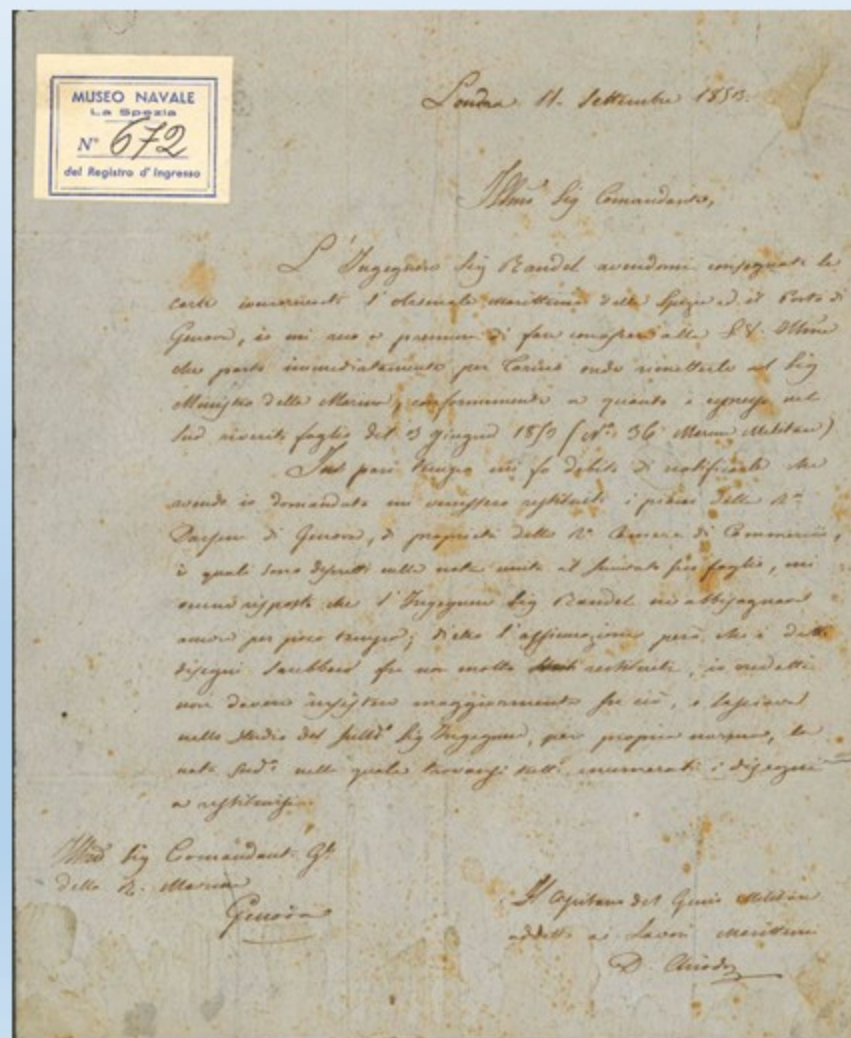 MUSEO NAVALE
La Spezia
N° 672
del Registro d'Ingresso
Londra 11. Settembre 1853.
Illmo Sig Comandante,
L'Ingegnere Sig Randel avendomi consegnate le
carte concernenti l'Arsenale Marittimo della Spezia ed il Porto di
Genova, io mi reco a premura di far conoscere alla S.V. Illma
che parto immediatamente per Torino onde rimetterle al Sig
Ministro della Marina, conformemente a quanto è espresso nel
suo riverito foglio del 3 giugno 1853 (N° 36 Marina Militare)
In pari tempo mi fo debito di notificarle che
avendo io domandato mi venissero restituiti i piani della Ra
Darsena di Genova, di proprietà della Ra Camera di Commercio,
i quali sono descritti nella nota unita al foglio, mi
venne risposto che l'Ingegnere Sig Randel ne abbisognava
ancora per poco tempo; dietro l'assicurazione però che i detti
disegni sarebbero fra non molto restituiti, io credetti
non dovere insistere maggiormente su ciò, e lasciava
nello studio del Sig Ingegnere, per propria norma, la
nota sudª nella quale trovansi tutti enumerati i disegni
a restituirsi.
Illmo Sig Comandante Gle
della R. Marina
Genova
Il Capitano del Genio Militare
addetto ai Lavori Marittimi
D. Chiodo